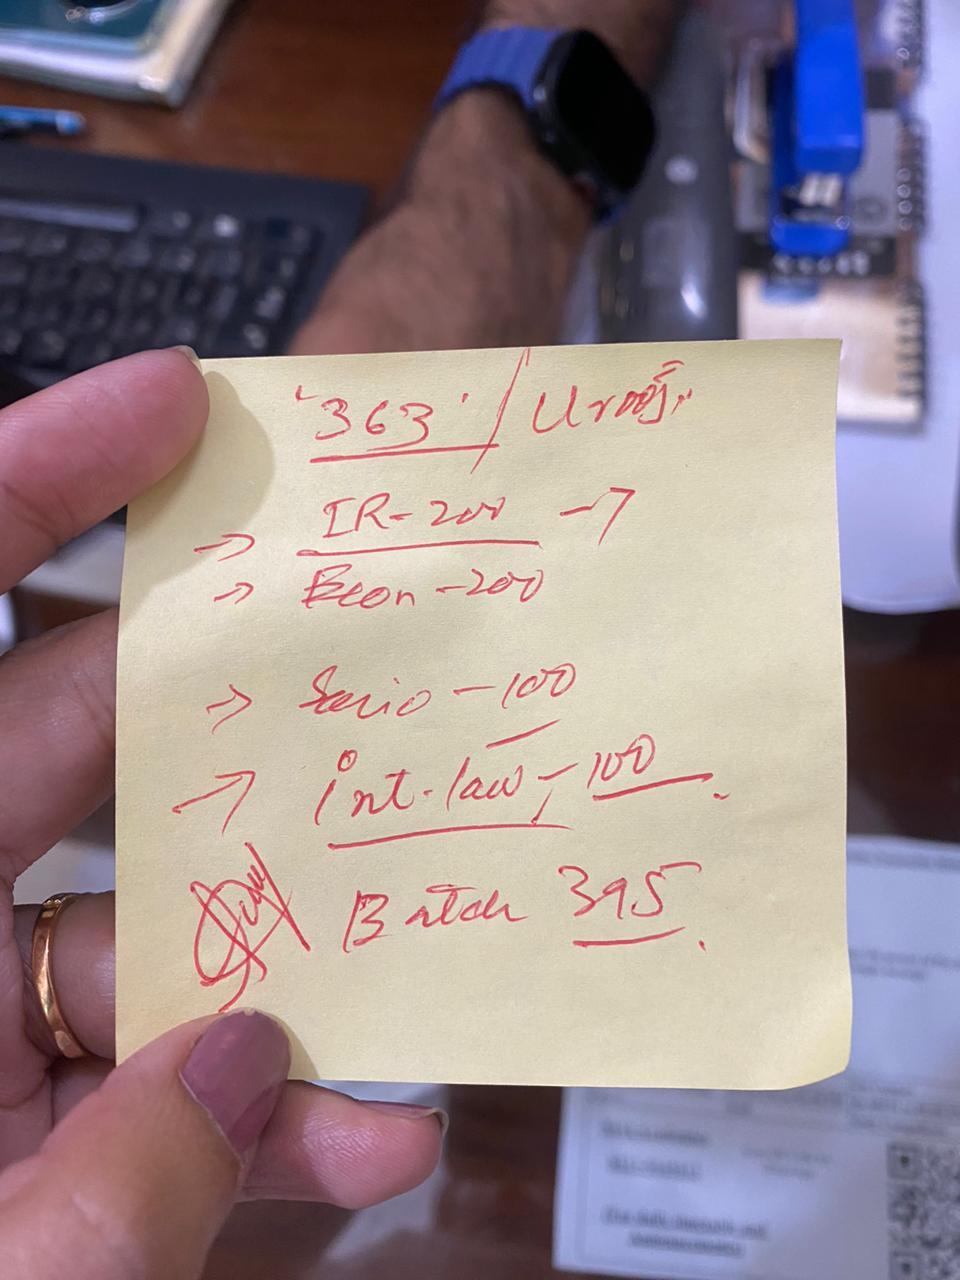 '363' / Urooj.
→ IR - 200 →
→ Econ - 200
→ Socio - 100
→ int. law - 100.
Batch 395.